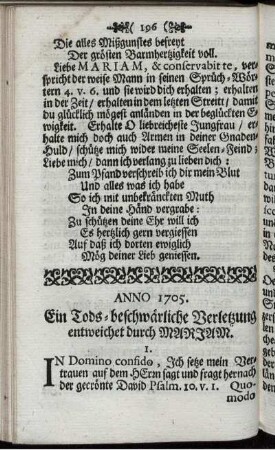 196
Die alles Mißgunstes befreyt
Der grösten Barmhertzigkeit voll.
Liebe MARIAM, & conservabit te, ver-
spricht der weise Mann in seinen Sprüch-Wör-
tern 4. v. 6. und sie wird dich erhalten; erhalten
in der Zeit / erhalten in dem letzten Streitt / damit
du glücklich mögest anländen in der beglückten E-
wigkeit. Erhalte O liebreicheste Jungfrau / er-
halte mich doch auch Armen in deiner Gnaden-
Huld / schütze mich wider meine Seelen-Feind;
Liebe mich / dann ich verlang zu lieben dich:
Zum Pfand verschreib ich dir mein Blut
Und alles was ich habe
So ich mit unbekränckten Muth
In deine Händ vergrabe:
Zu schützen deine Ehr will ich
Es hertzlich gern vergiessen
Auf daß ich dorten ewiglich
Mög deiner Lieb geniessen.
ANNO 1705.
Ein Tods-beschwärliche Verletzung
entweichet durch MARIAM.
1.
IN Domino confido, Ich setze mein Ver-
trauen auf dem HErrn sagt und fragt hernach
der gecrönte David Psalm. 10. v. 1. Quo-
modo